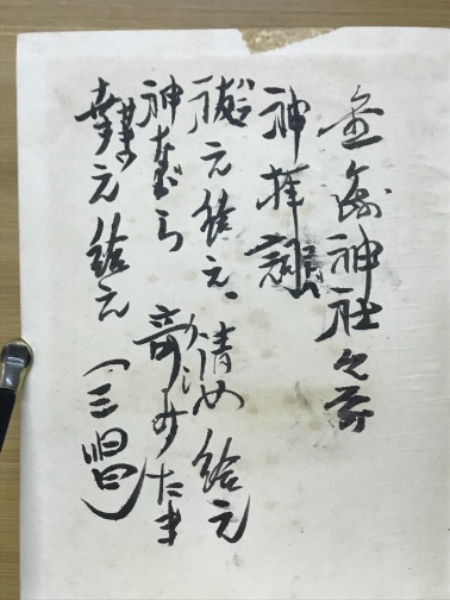 神社々
神拝詞
祓え給え、清め給え
神ながら 奇みたま
幸え給え (三唱)